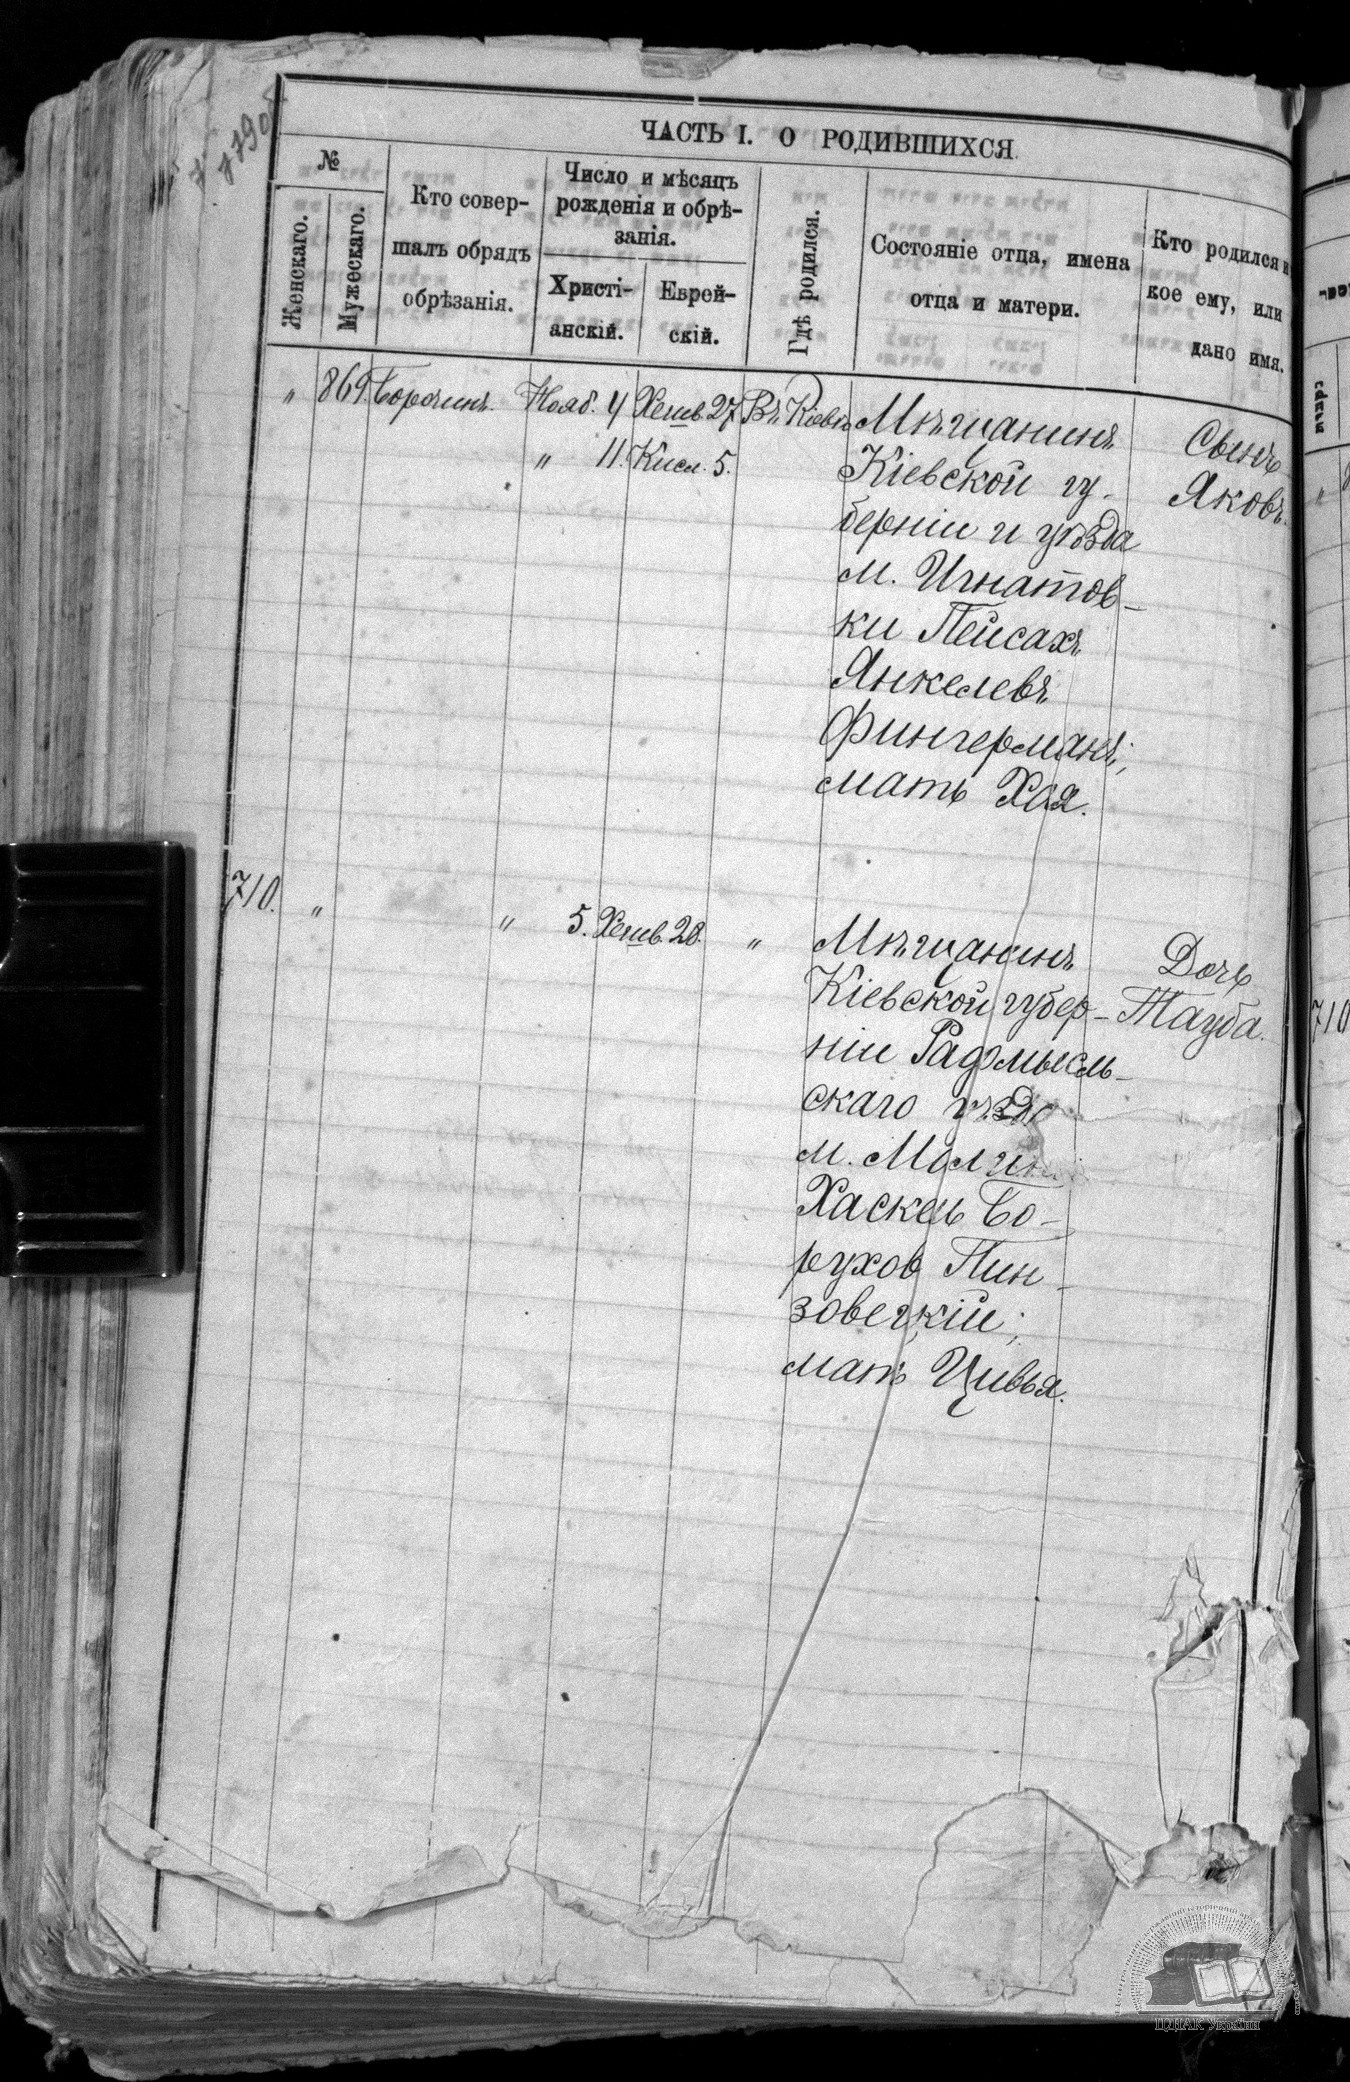 779об
ЧАСТЬ I. О РОДИВШИХСЯ
№
Женскаго.
Мужескаго.
Кто совер-
шалъ обрядъ
обрѣзанія.
Число и мѣсяцъ
рожденія и обрѣ-
занія.
Христі-
анскій.
Еврей-
скій.
Гдѣ родился.
Состояніе отца, имена
отца и матери.
Кто родился и
кое ему, или
дано имя.
" 869. Нояб. 4 Хешв. 27 Въ Кіевѣ
" 11. Кисл. 5.
Мѣщанинъ
Кіевской гу-
берніи и уѣзда
м. Игнатов-
ки Пейсахъ
Янкелевъ
Фингерманъ;
мать Хая.
Сынъ
Яковъ.
710. " " 5. Хешв. 28. "
Мѣщанинъ
Кіевской губер-
ніи Радомысль-
скаго уѣзда
м. Малина
Хаскель Бо-
рухов Пин-
зовецкій;
мать Цивья.
Дочь
Тауба.
710
ЦДІАК України